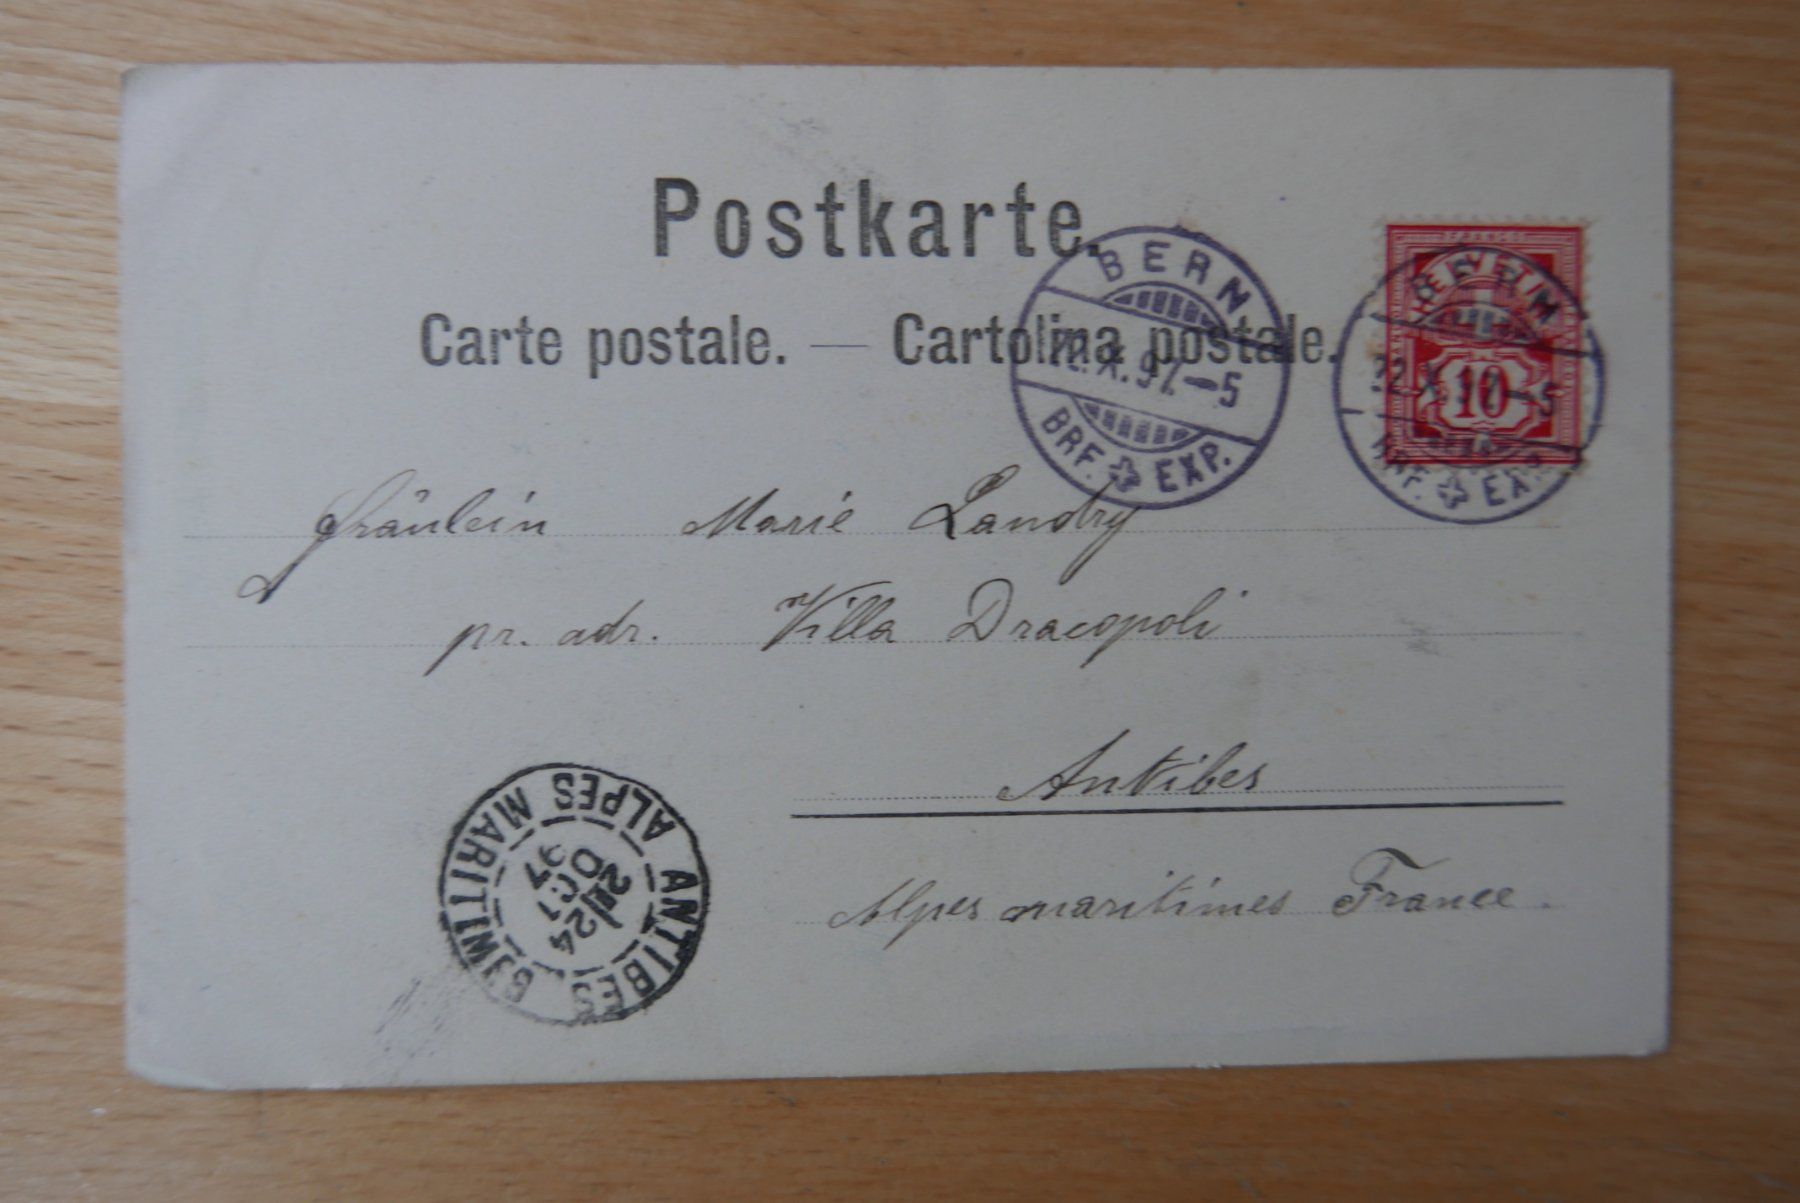 Postkarte.
Carte postale. — Cartolina postale.
BERN
22.X.97.–5
BRF. EXP.
HELVETIA
10
BERN
22.X.97–5
BRF. EXP.
Fräulein Marie Landry
pr. adr. Villa Dracopoli
Antibes
Alpes maritimes France.
ANTIBES
24
OCT
97
ALPES MARITIMES